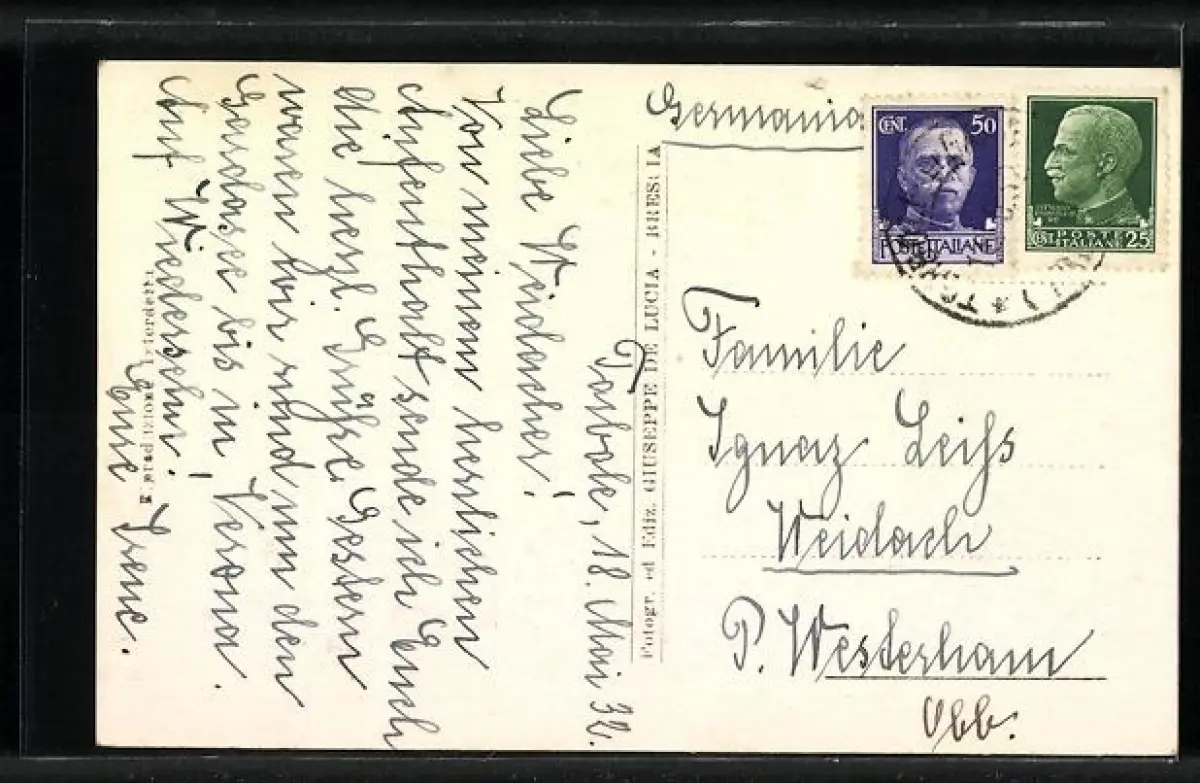 Torbole, 18. Mai 32.
Liebe Weidacher!
Von meinem herrlichen
Aufenthalt sende ich Euch
die herzl. Grüße. Gestern
waren wir rund um den
Gardasee bis in Verona.
Auf Wiedersehn!
Eure Irene.
Fotogr. ed Ediz. GIUSEPPE DE LUCIA - BRESCIA
Germania
CENT. 50
POSTE ITALIANE
CENT. 25
POSTE
ITALIANE
Familie
Ignaz Leiß
Weidach
P. Westerham
Obb.